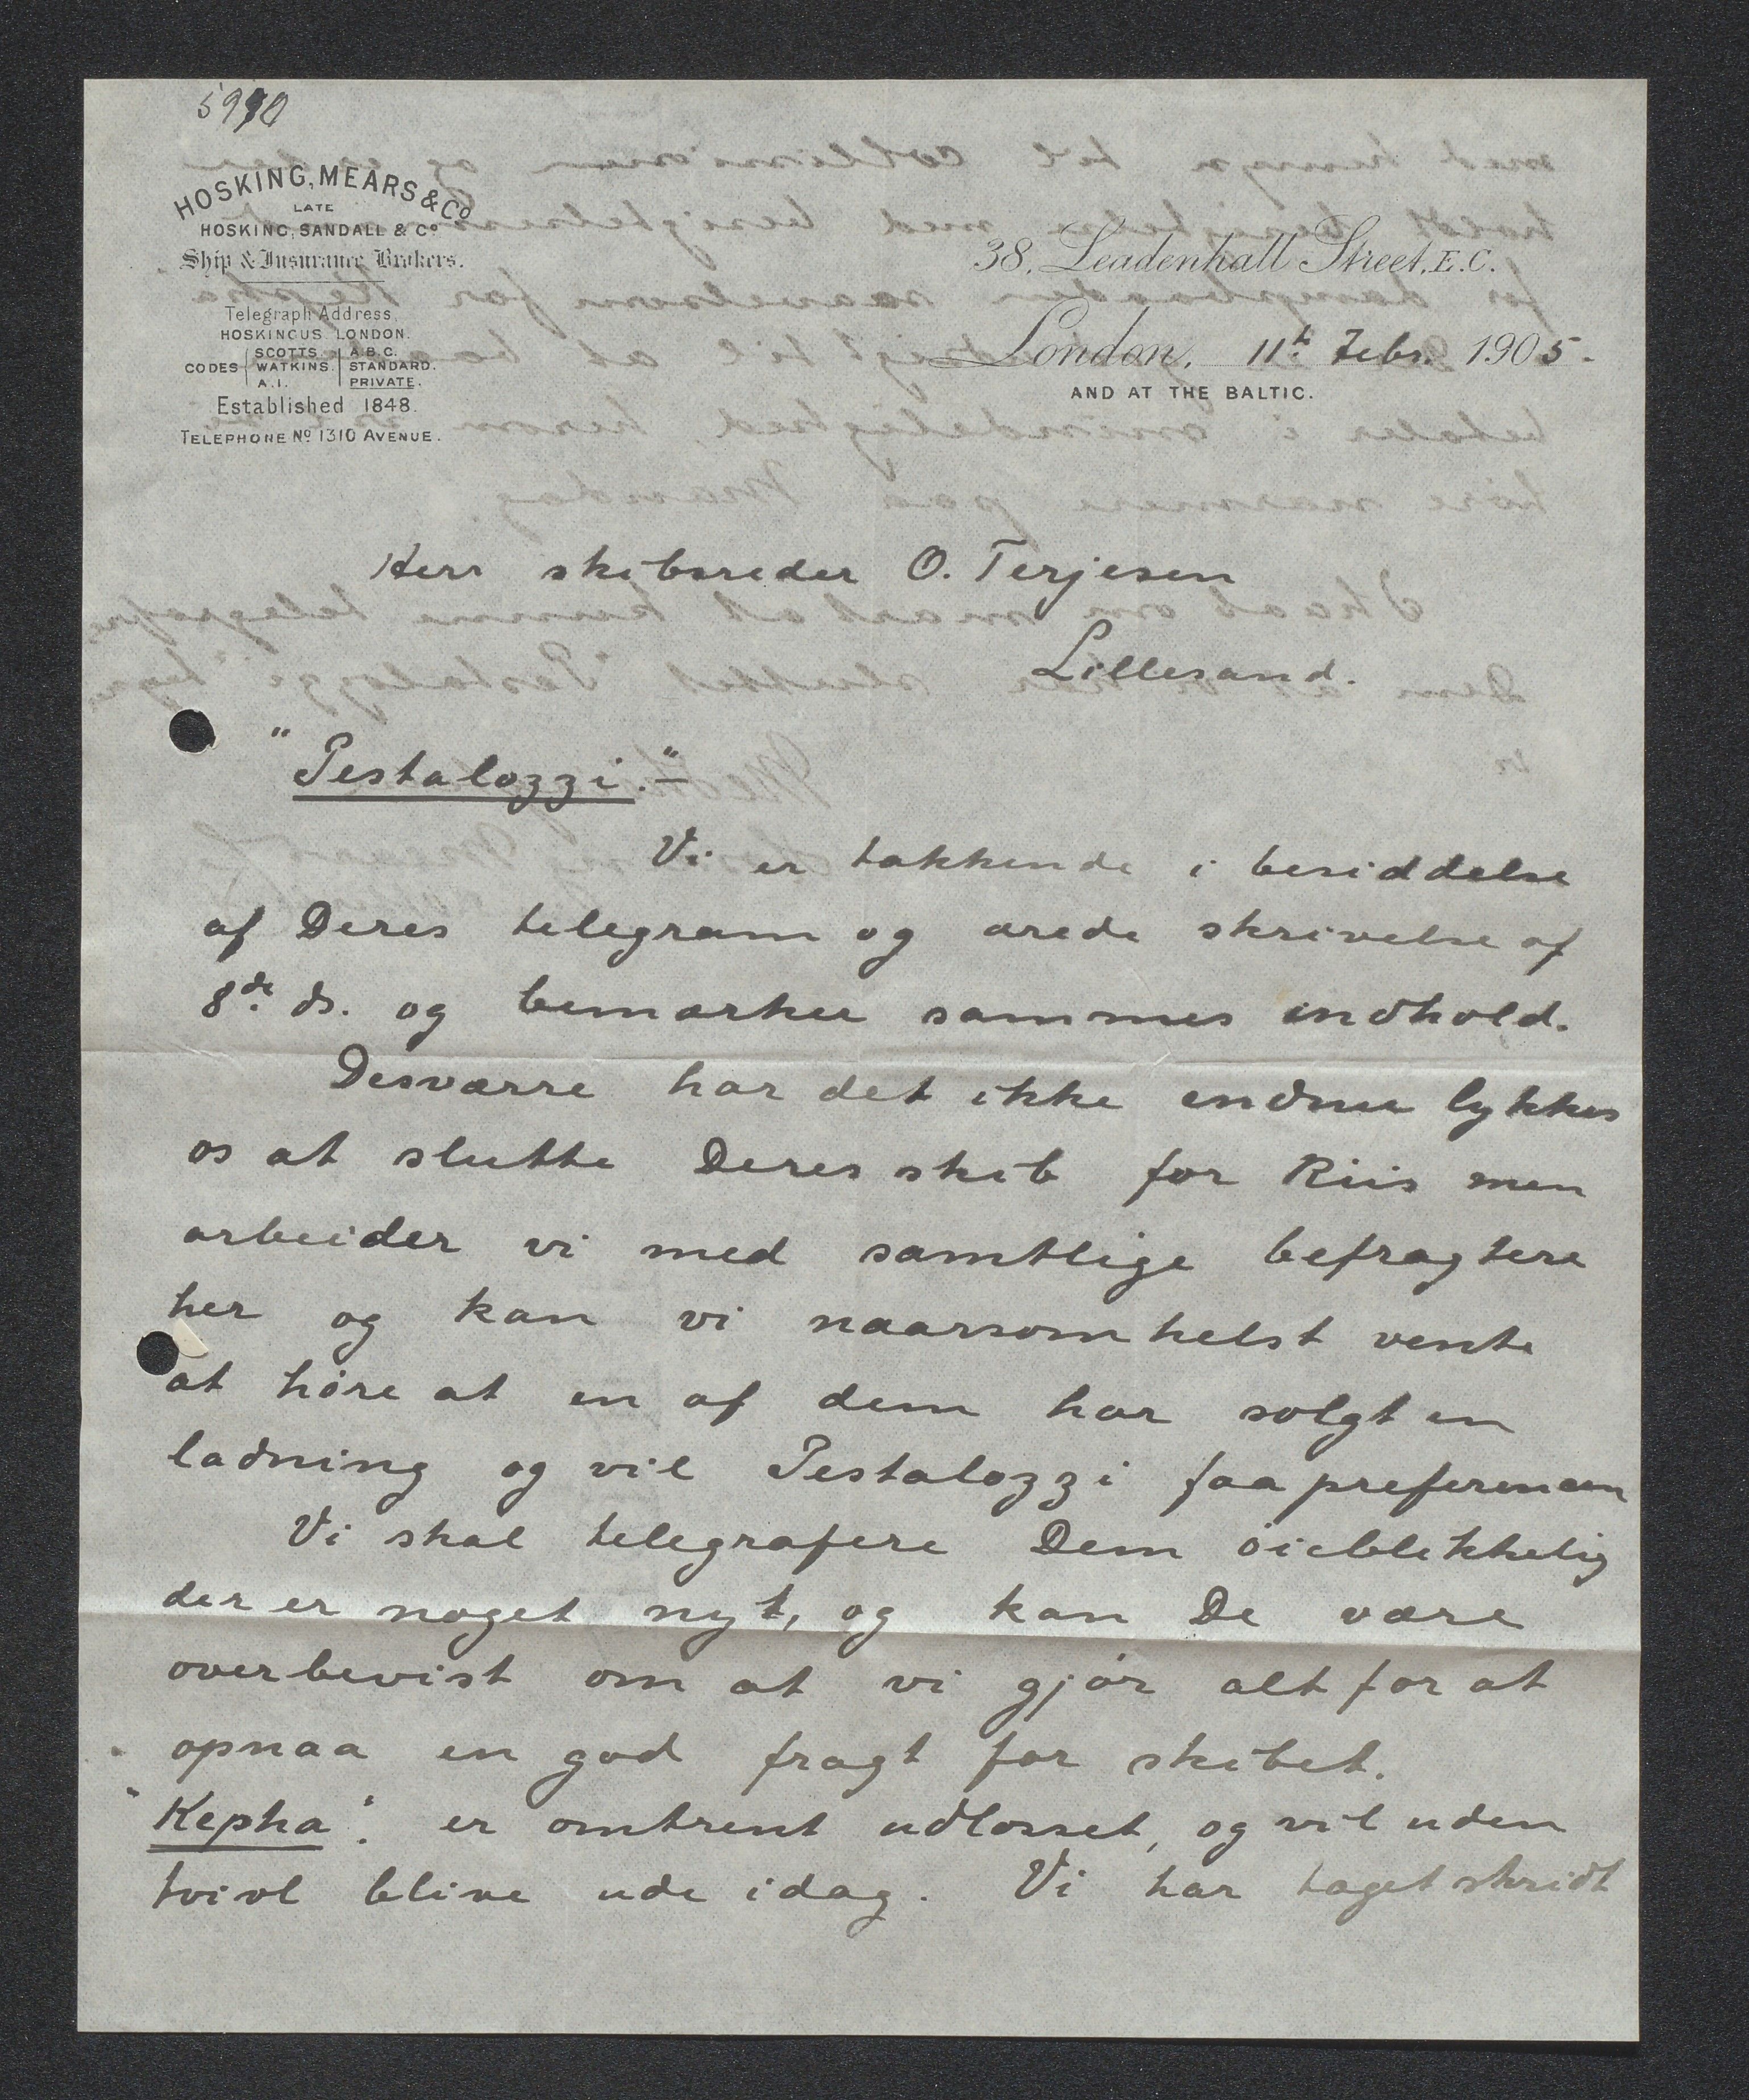 5990
HOSKING, MEARS & Co
LATE
HOSKING, SANDALL & Co
Ship & Insurance Brokers.
Telegraph Address,
HOSKINGUS LONDON.
CODES SCOTTS. A.B.C.
WATKINS. STANDARD.
A.I. PRIVATE.
Established 1848.
TELEPHONE No 1310 AVENUE.
38, Leadenhall Street, E.C.
London, 11th Febr. 1905.
AND AT THE BALTIC.
Herr skibsreder O. Terjesen
Lillesand.
"Pestalozzi."
Vi er takkende i besiddelse
af Deres telegram og ærede skrivelse af
8de ds. og bemærker sammes indhold.
Desværre har det ikke endnu lykkes
os at slutte Deres skib for Riis men
arbeider vi med samtlige befragtere
her og kan vi naarsomhelst vente
at høre at en af dem har solgt en
ladning og vil Pestalozzi faa preferencen
Vi skal telegrafere Dem øieblikkelig
der er noget nyt, og kan De være
overbevist om at vi gjør alt for at
opnaa en god fragt for skibet.
"Kepha". er omtrent udlosset, og vil uden
tvivl blive ude idag. Vi har taget skridt